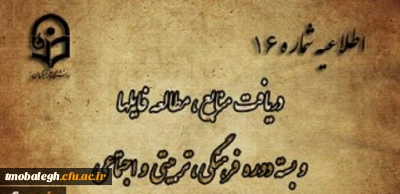 اطلاعیه شماره ۱۶
دریافت منابع، مطالعه فایلها
و بسته دوره فرهنگی، تربیتی و اجتماعی
tmobalegh.cfu.ac.ir